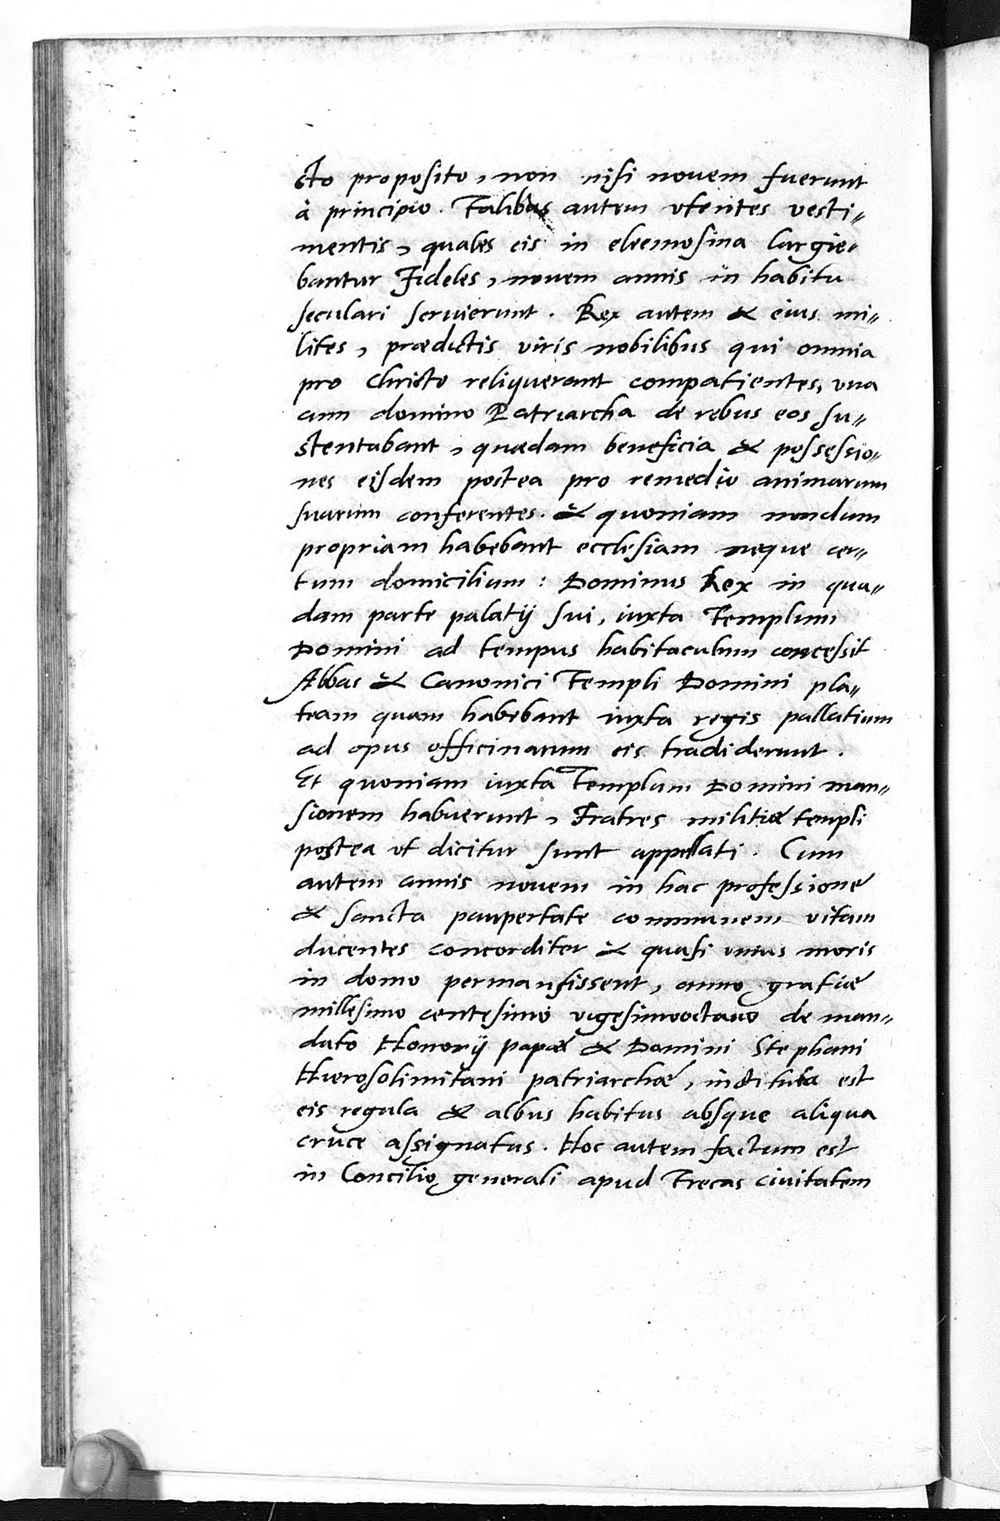 cto proposito, non nisi nouem fuerunt
à principio. Talibus autem vtentes vesti-
mentis, quales eis in eleemosina largie-
bantur Fideles, nouem annis in habitu
seculari seruierunt. Rex autem & eius mi-
lites, prædictis viris nobilibus qui omnia
pro Christo reliquerant compatientes, vna
cum domino Patriarcha de rebus eos su-
stentabant, quædam beneficia & possessio-
nes eisdem postea pro remedio animarum
suarum conferentes. & quoniam nondum
propriam habebant ecclesiam neque cer-
tum domicilium: Dominus Rex in qua-
dam parte palatij sui, iuxta Templum
Domini ad tempus habitaculum concessit
Abbas & Canonici Templi Domini pla-
team quam habebant iuxta regis pallatium
ad opus officinarum eis tradiderunt.
Et quoniam iuxta Templum Domini man-
sionem habuerunt, Fratres militiæ templi
postea vt dicitur sunt appellati. Cum
autem annis nouem in hac professione
& sancta paupertate communem vitam
ducentes concorditer & quasi vnius moris
in domo permansissent, anno gratiæ
millesimo centesimo vigesimooctauo de man-
dato Honorij papæ & Domini Stephani
Hierosolimitani patriarchæ, instituta est
eis regula & albus habitus absque aliqua
cruce assignatus. Hoc autem factum est
in Concilio generali apud Trecas ciuitatem